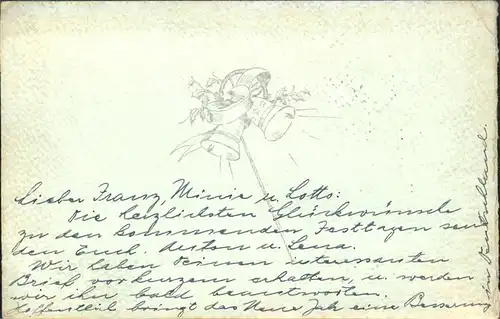 Lieber Franz, Minie u. Lotto:
Die herzlichsten Glückwünsche
zu den kommenden Festtagen sen-
den Euch. Anton u. Lena.
Wir haben Deinen interessanten
Brief vor kurzem erhalten, u. werden
wir ihn bald beantworten.
Hoffentlich bringt das Neue Jahr eine Besserung
in Deutschland.